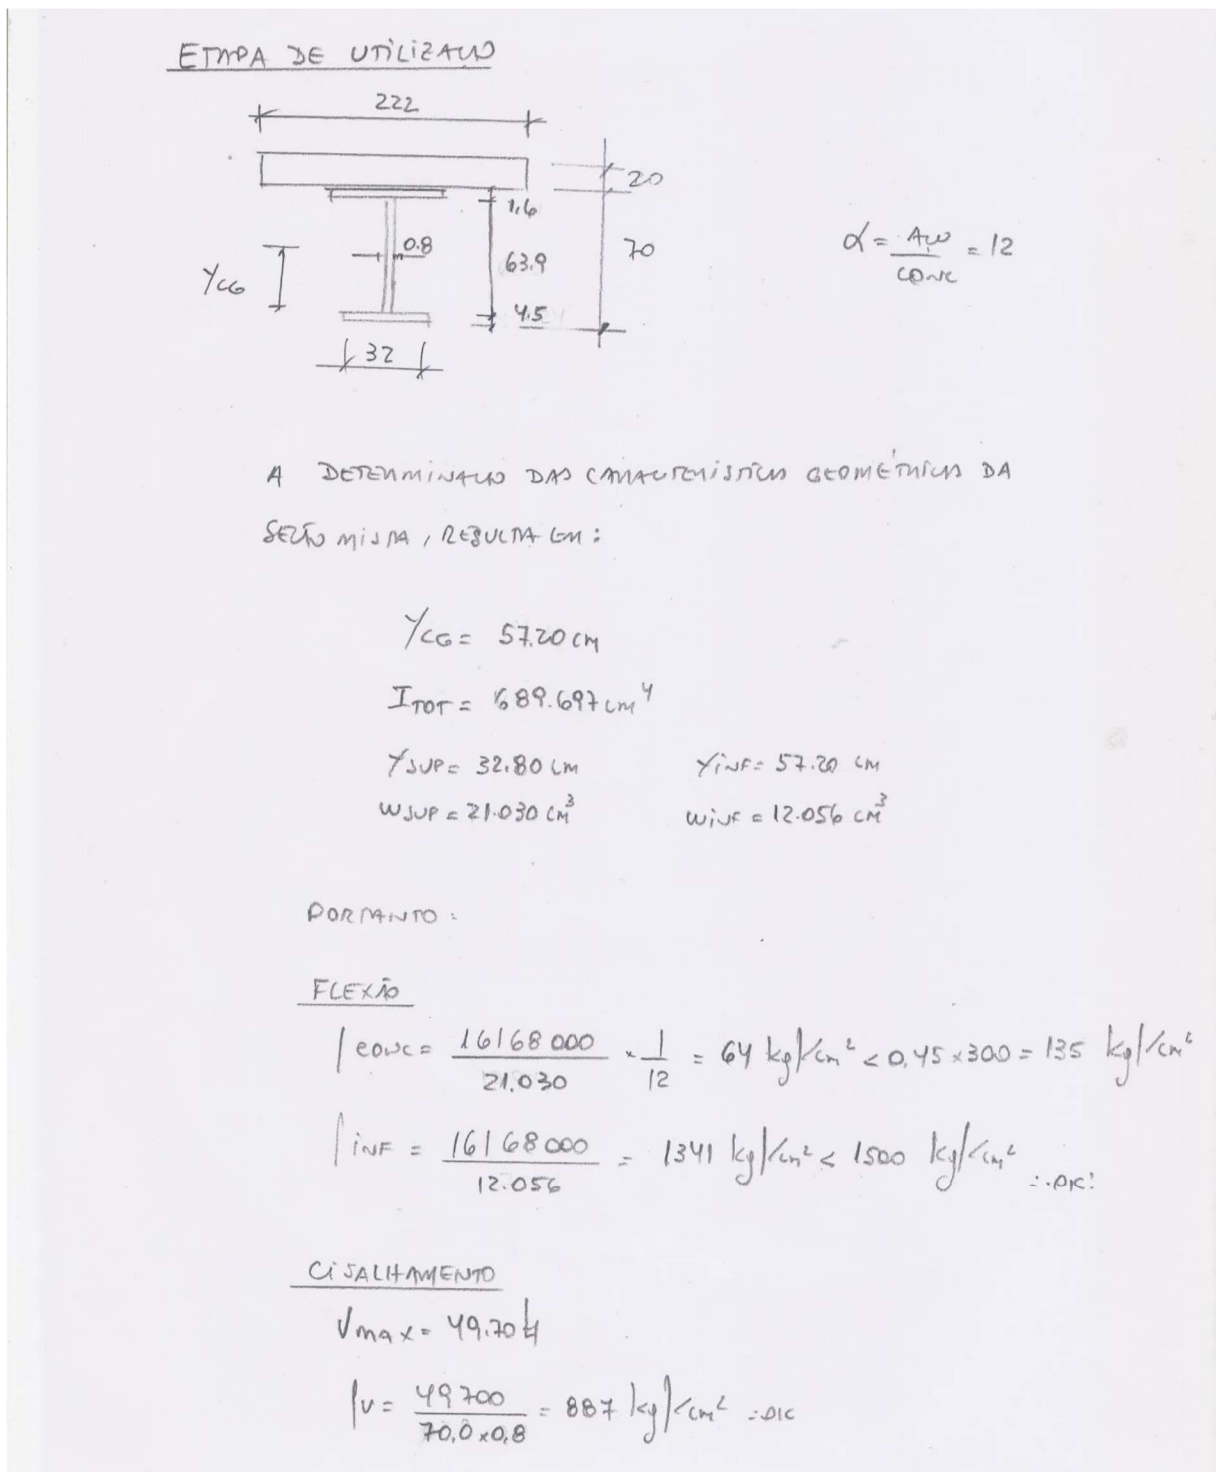 ETAPA DE UTILIZAÇÃO
222
20
1.6
0.8
63.9
70
α = AÇO / CONC = 12
YCG
4.5
32
A DETERMINAÇÃO DAS CARACTERÍSTICAS GEOMÉTRICAS DA
SEÇÃO MISTA, RESULTA EM:
YCG = 57.20 cm
ITOT = 689.697 cm⁴
YSUP = 32.80 cm YINF = 57.20 cm
WSUP = 21.030 cm³ WINF = 12.056 cm³
PORTANTO:
FLEXÃO
fCONC = 16168000 / 21.030 × 1/12 = 64 kgf/cm² < 0,45 × 300 = 135 kgf/cm²
fINF = 16168000 / 12.056 = 1341 kgf/cm² < 1500 kgf/cm² ∴ OK!
CISALHAMENTO
VMAX = 49.70 tf
fv = 49700 / 70,0 × 0,8 = 887 kgf/cm² ∴ OK